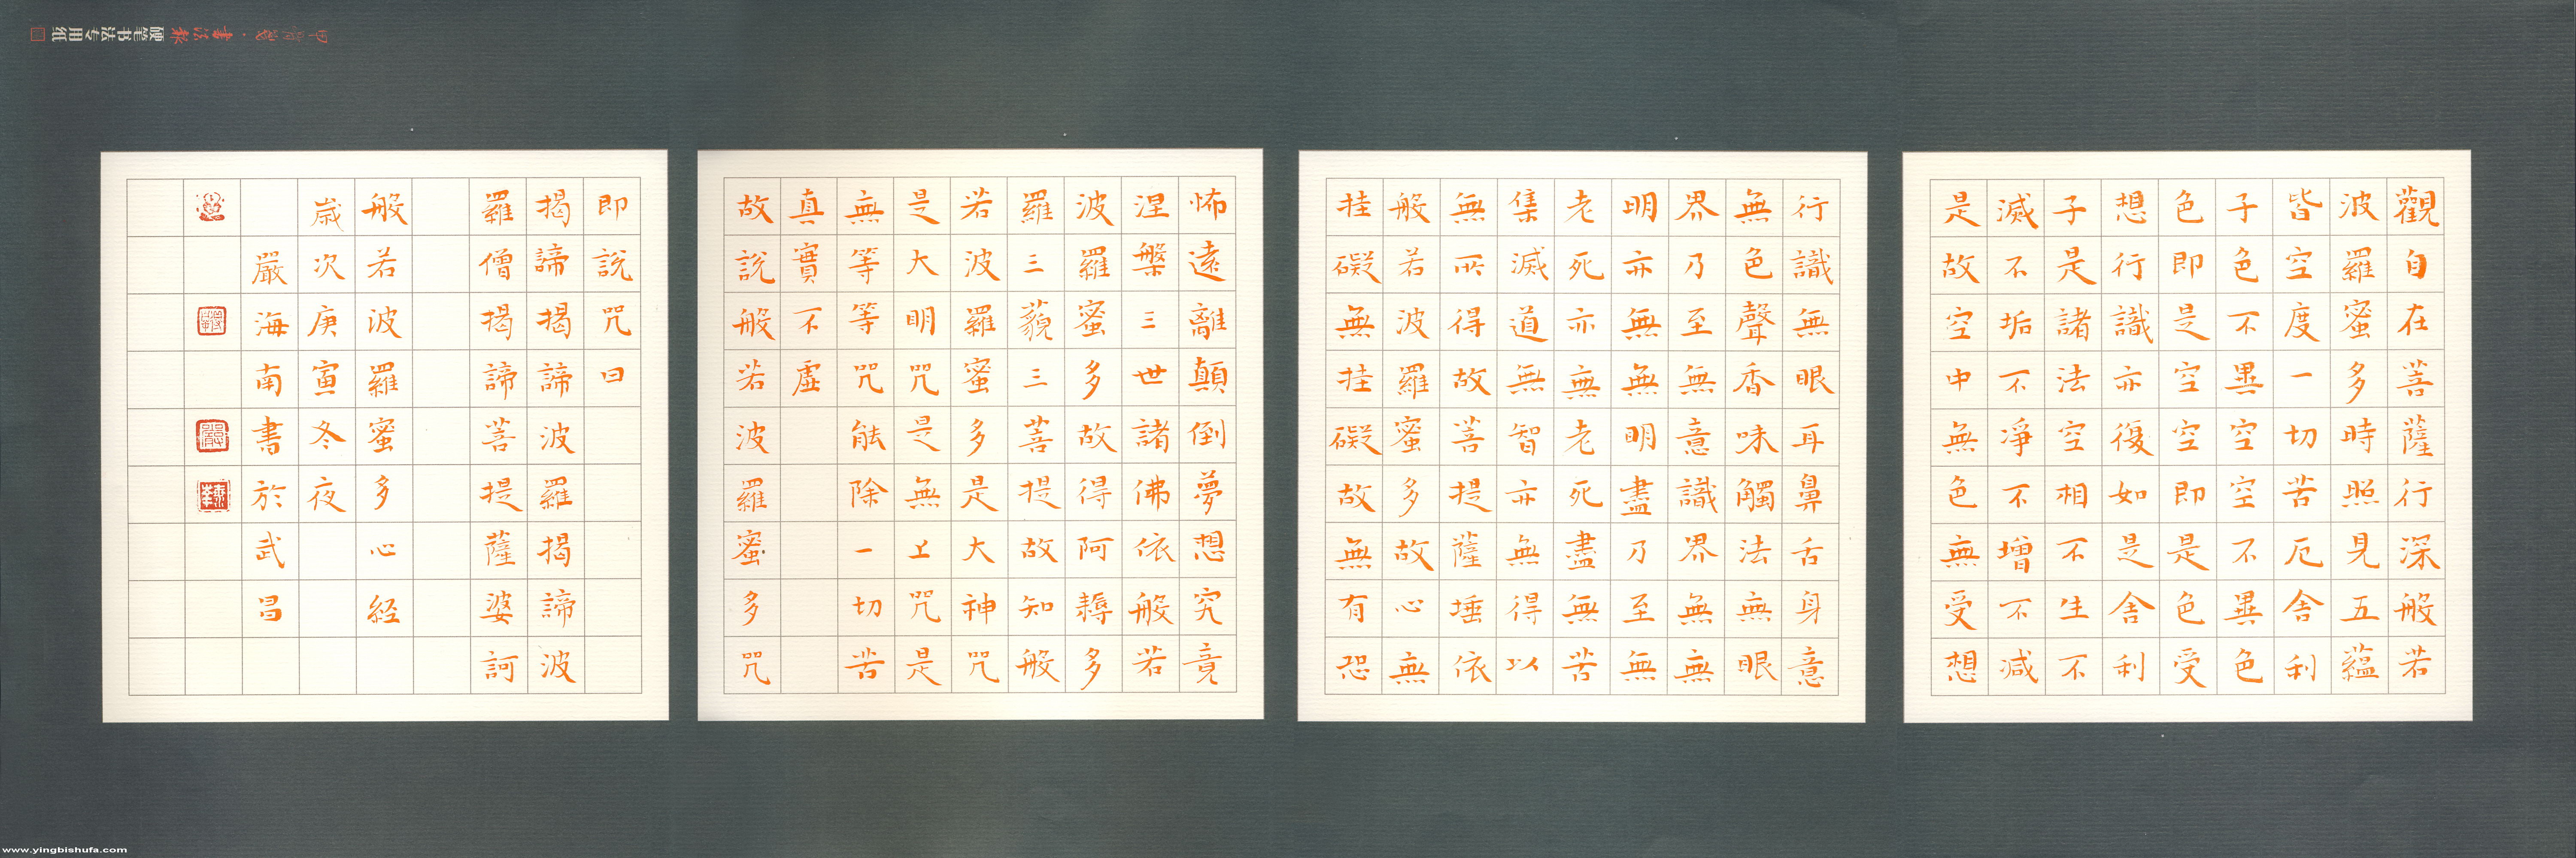 觀自在菩薩行深般若
波羅蜜多時照見五蘊
皆空度一切苦厄舍利
子色不異空空不異色
色即是空空即是色受
想行識亦復如是舍利
子是諸法空相不生不
滅不垢不淨不增不減
是故空中無色無受想
行識無眼耳鼻舌身意
無色聲香味觸法無眼
界乃至無意識界無無
明亦無無明盡乃至無
老死亦無老死盡無苦
集滅道無智亦無得以
無所得故菩提薩埵依
般若波羅蜜多故心無
挂礙無挂礙故無有恐
怖遠離顛倒夢想究竟
涅槃三世諸佛依般若
波羅蜜多故得阿耨多
羅三藐三菩提故知般
若波羅蜜多是大神咒
是大明咒是無上咒是
無等等咒能除一切苦
真實不虛
故說般若波羅蜜多咒
即說咒曰
揭諦揭諦波羅揭諦波
羅僧揭諦菩提薩婆訶
般若波羅蜜多心経
歲次庚寅冬夜
嚴海南書於武昌
硬笔书法专用纸
www.yingbishufa.com